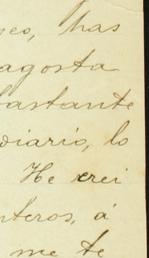 eo, has
agosta
bastante
diario, lo
He crei
nteros, á
me te